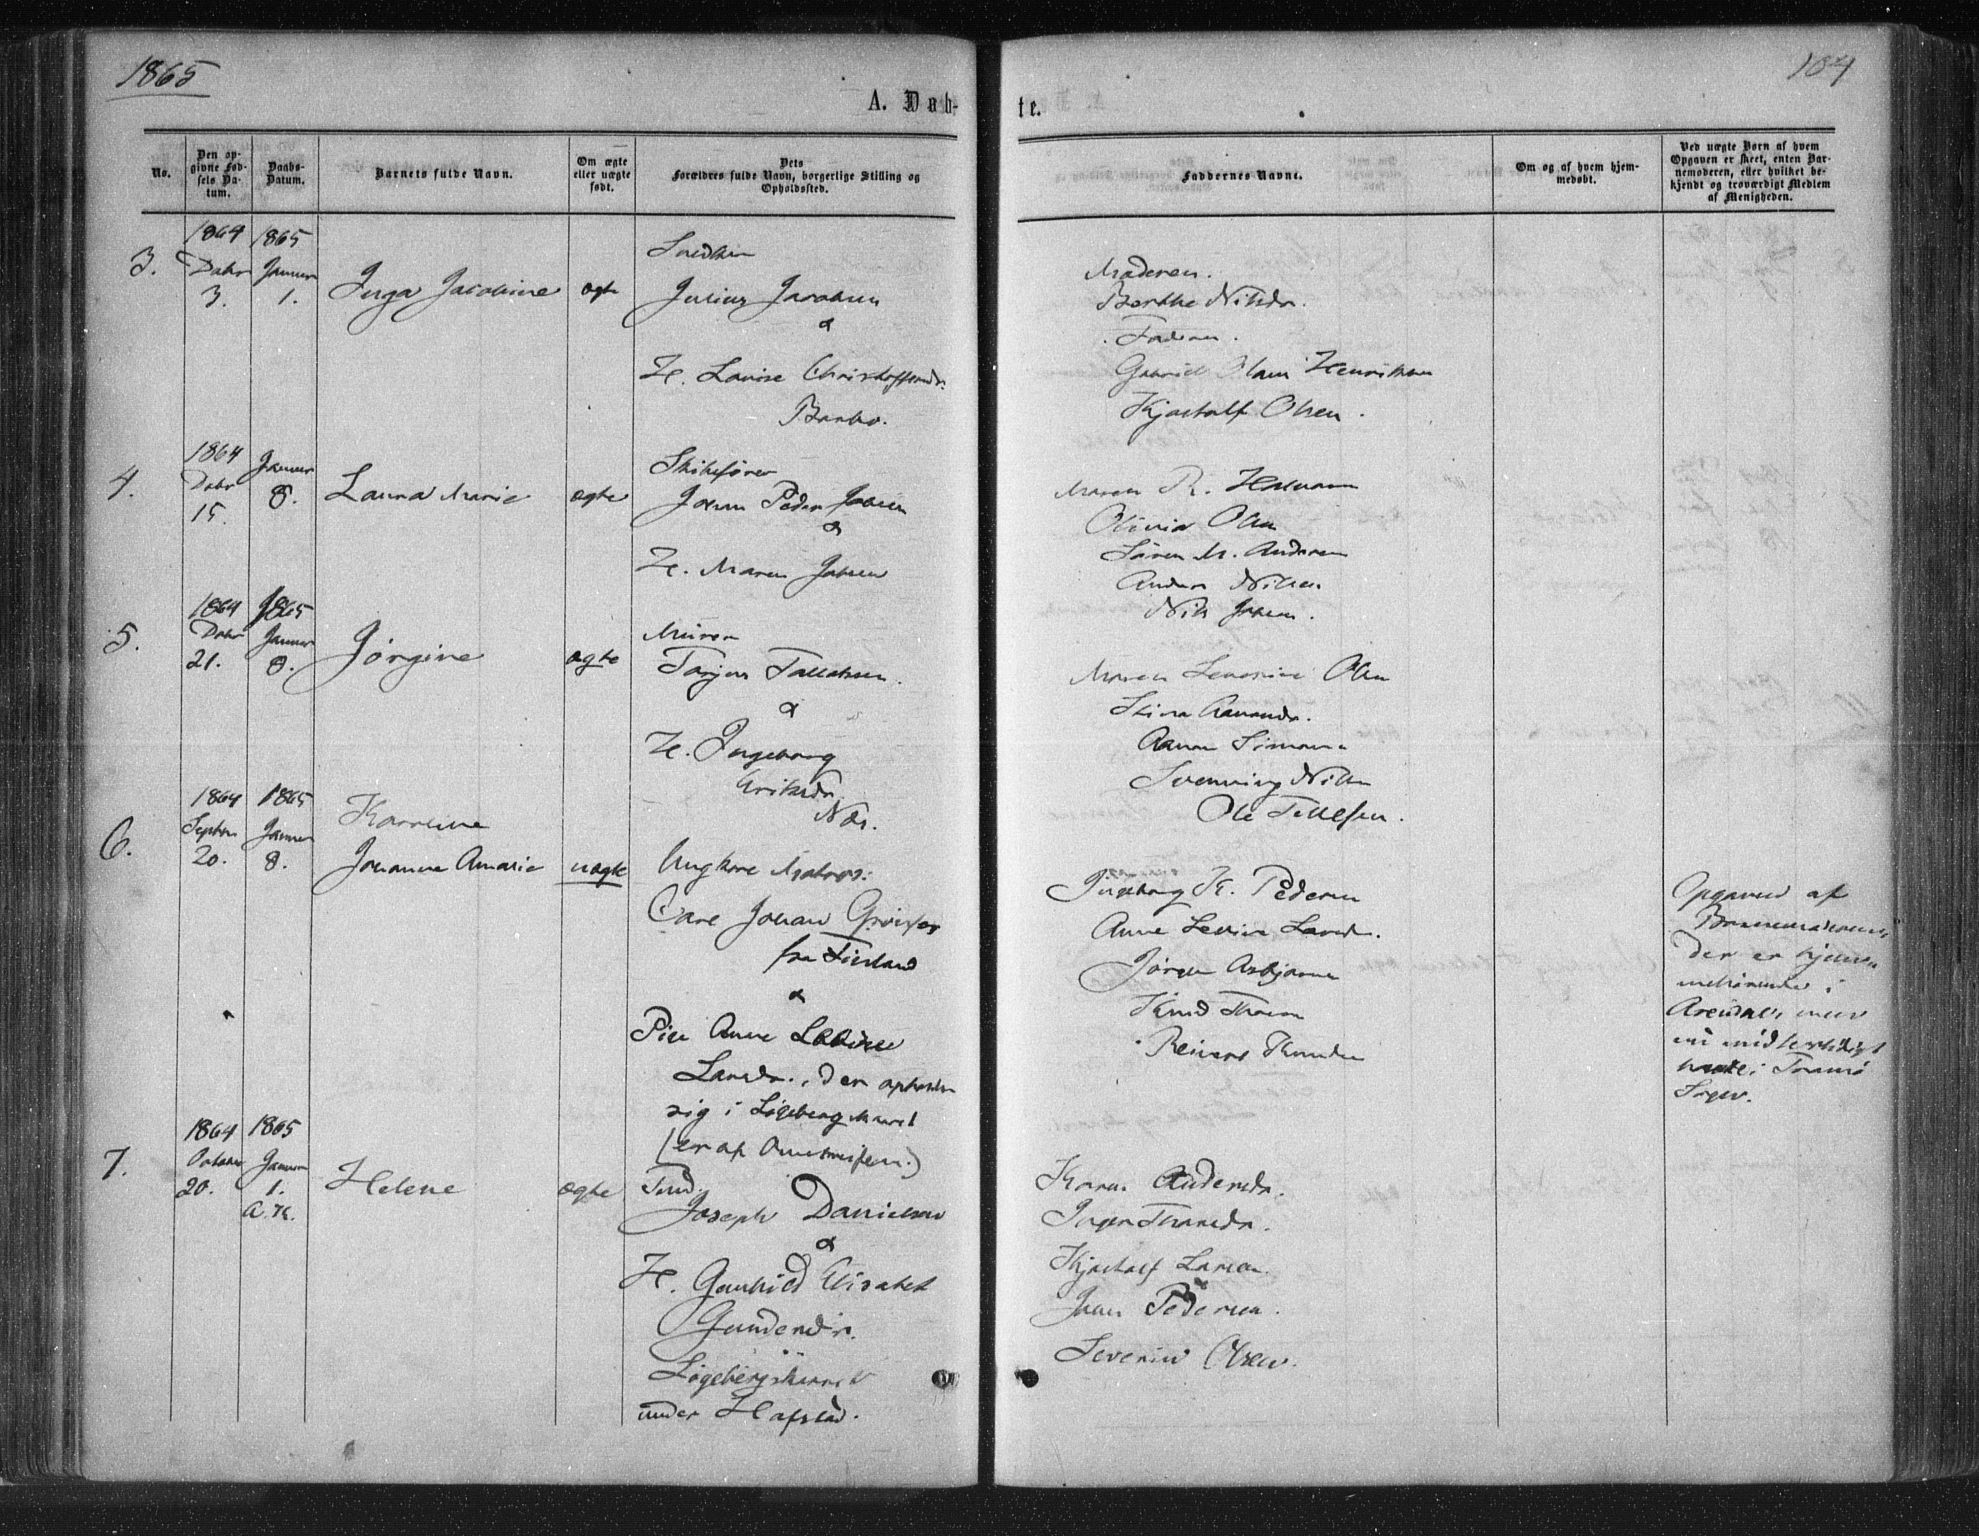 1865
104
A. Døb-
te.
No.
Den op-
givne Fød-
sels Da-
tum.
Daabs-
Datum.
Barnets fulde Navn.
Om ægte
eller uægte
født.
Dets
Forældres fulde Navn, borgerlige Stilling og
Opholdssted.
Faddernes Navne.
Om og af hvem hjem-
medøbt.
Ved uægte Børn af hvem
Opgaven er skeet, enten Bar-
nemoderen, eller hvilket be-
kjendt og troværdigt Medlem
af Menigheden.
3.
1864
Decbr
3.
1865
Januar
1.
Inga Jacobine
ægte
Snedker
Julius Jacobsen
&
H. Lovise Christoffersdr.
Barbo.
Moderen.
Berthe Nilsdr.
Faderen.
Gabriel Henriksen
Kjøstolf Olsen.
4.
1864
Decbr
15.
Januar
8.
Laura Marie
ægte
Skibsfører
Johan Peder Jensen
&
H. Maren Jensen
Maren
Olivia Olsen
Søren M. Andersen
Anders Nilsen
Nils Jensen.
5.
1864
Decbr
21.
1865
Januar
8.
Jørgine
ægte
Murer
Torjus Tallaksen.
&
H. Ingeborg
Eriksdr.
Næs.
Maren Severine Olsen
Stina Aanonsdr.
Aanon Simonsen
Svenning Nilsen
Ole Tellefsen.
6.
1864
Septbr
20.
1865
Januar
8.
Karrine
Johanne Amalie
uægte
Ungkarl Matros:
Carl Johan
fra Finland
&
Pige Anne Lovise
Larsdr., der opholder
sig i Løgeberg Marst
(er af Omstreifere.)
Ingeborg K. Pedersen
Anne Larsdr.
Jørgen Asbjørnsen
Knud Thorsen
Reiers Knudsen
Opgaven af
Barnemoderen,
der er hjem-
mehørende i
Arendal, men
nu midlertidigt
i Tromø
Sogn.
7.
1864
October
20.
1865
Januar
1.
A. K.
Helene
ægte
Tind.
Joseph Danielsen
&
H. Gunhild Elisabet
Gundersdr.
Løgebergskaret
under Hafstad.
Karen Andersdr.
Inger Thorsdr.
Kjøstolf Larsen.
Jens Pedersen.
Severin Olsen.